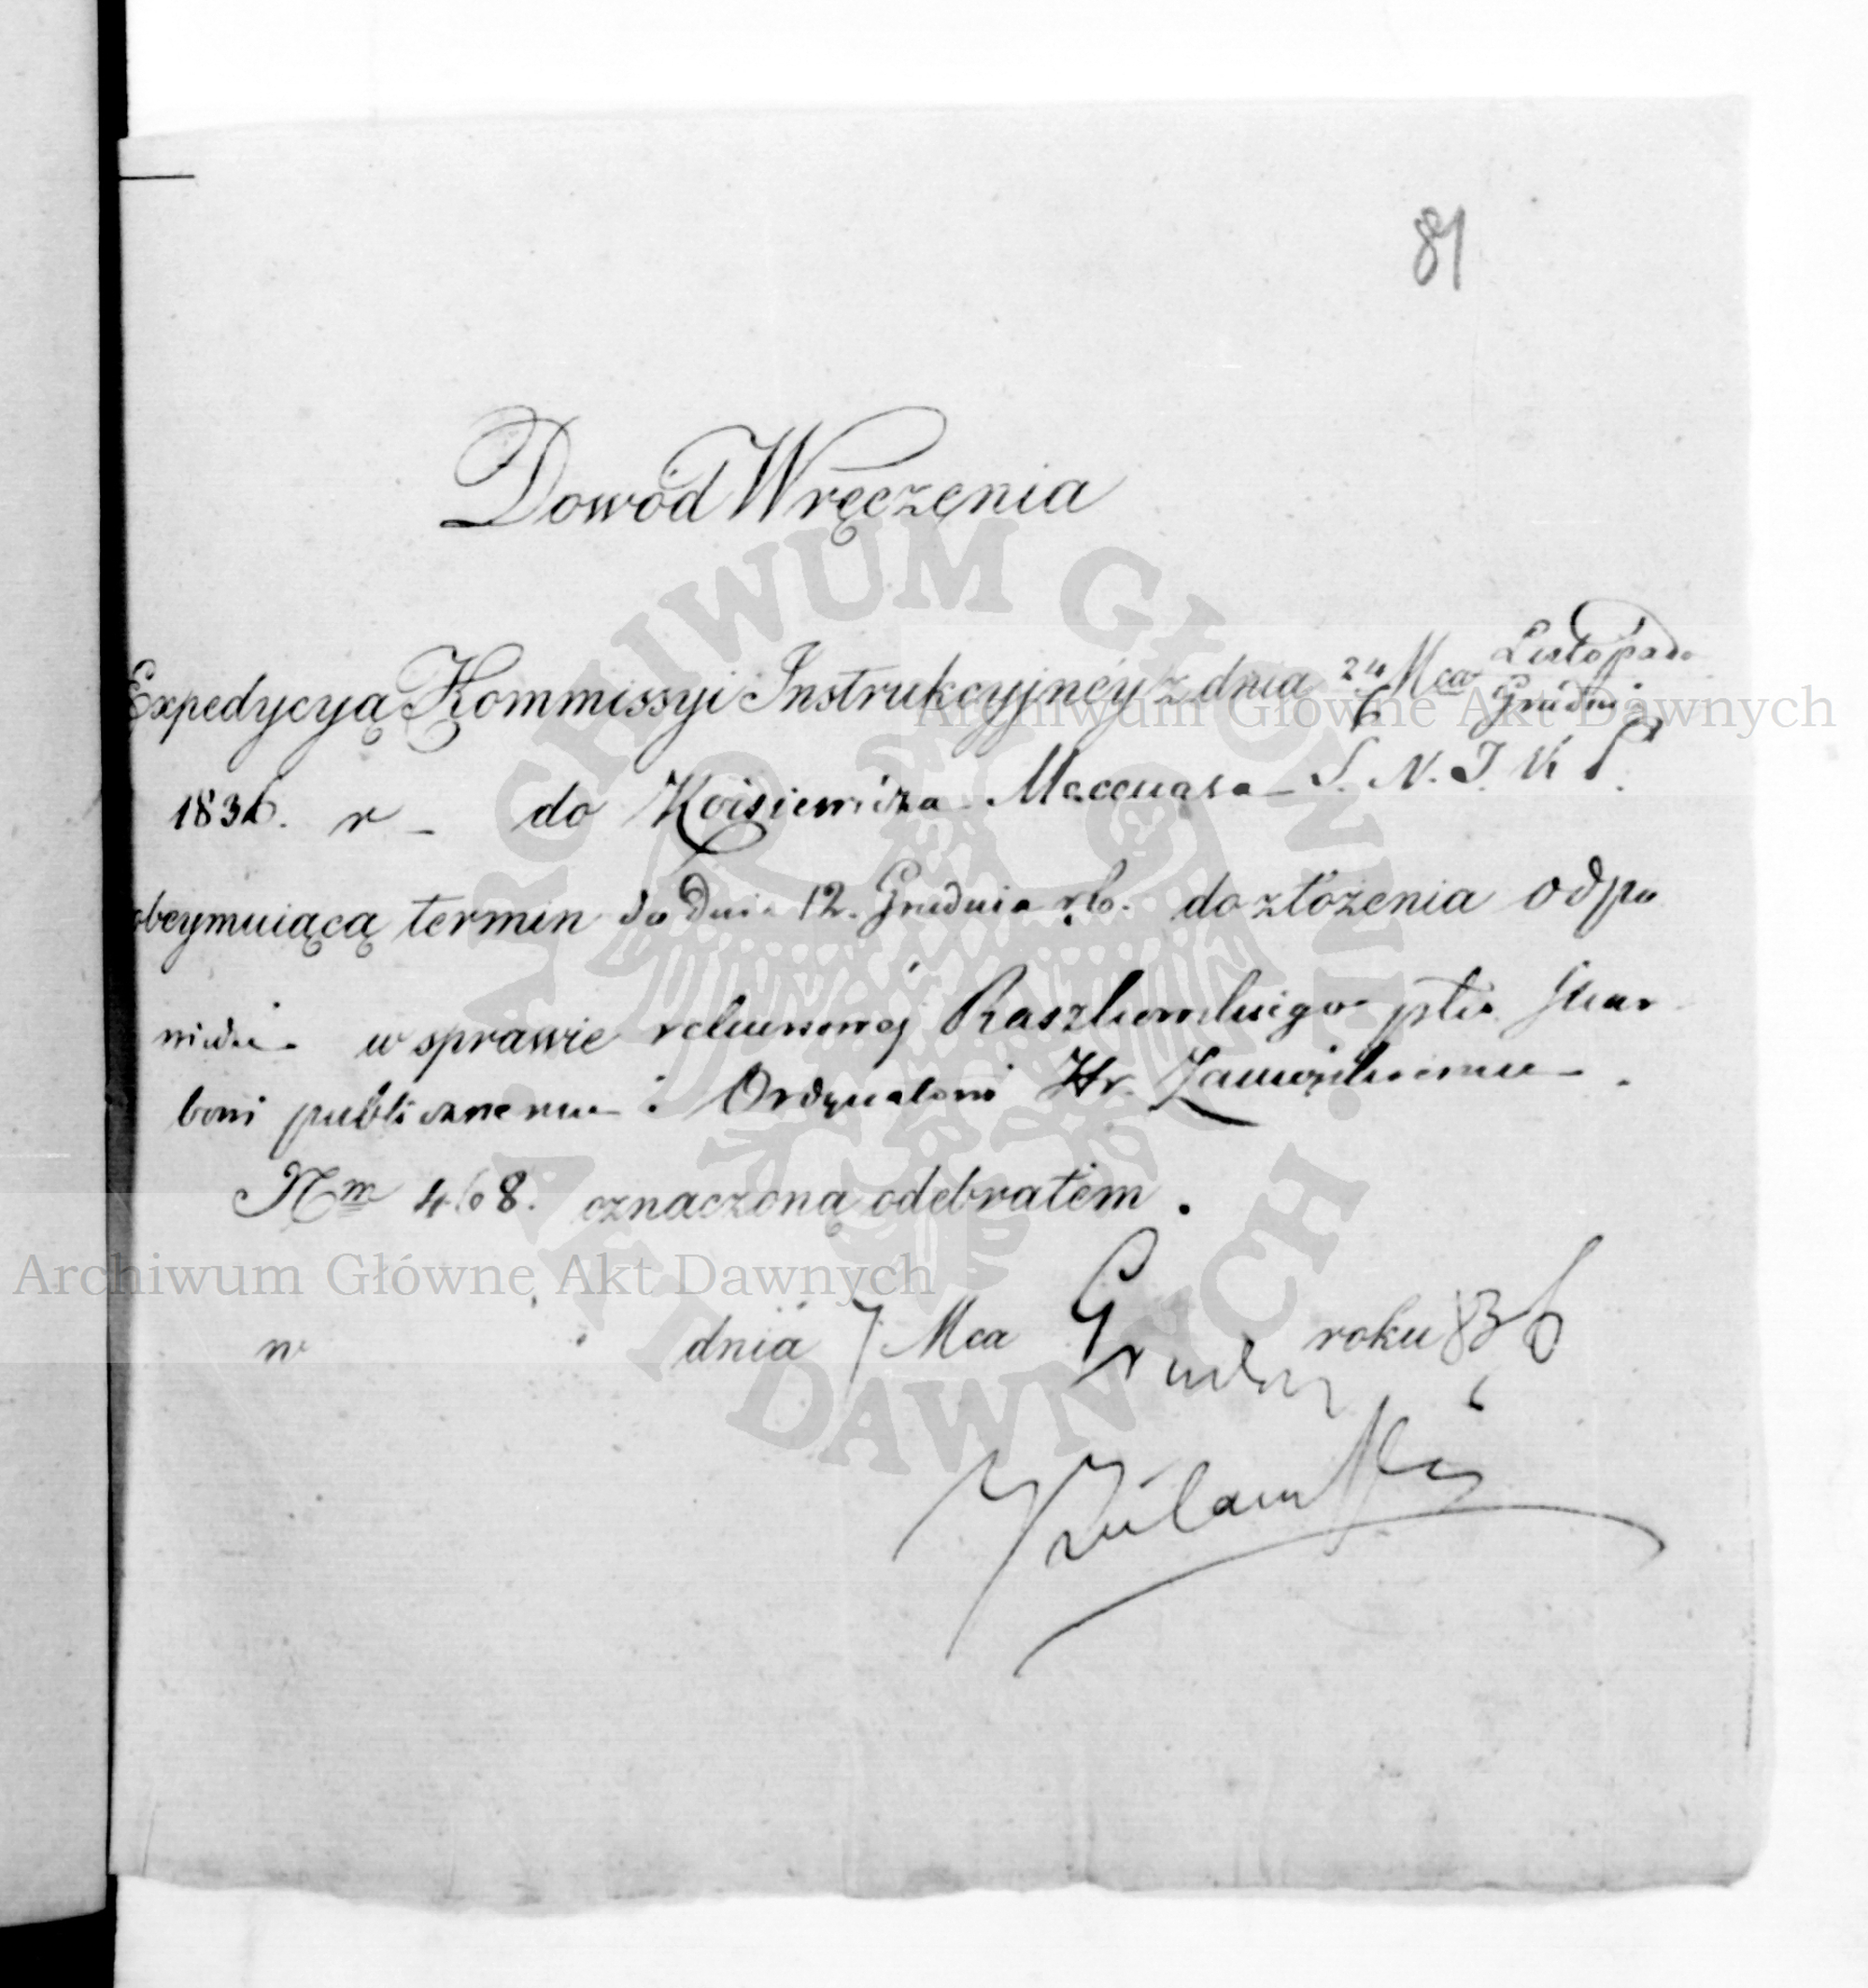 81
Dowód Wręczenia
Expedycyą Kommissyi Instrukcyjnéy z dnia 24/6 Mca Listopada/Grudnia
1836. r – do Koisiewicza Mecenasa S. N. J. K P.
obeymuiącą termin do Dnia 12. Grudnia r.b. do złożenia odpo
wiedzi w sprawie Raszkowskiego ptko Skar
bowi publicznemu i Ordynatowi Hr. Zamoyskiemu.
Nrm 468. oznaczoną odebrałem.
w dnia 7 Mca Grudn roku 836
ARCHIWUM GŁÓWNE AKT DAWNYCH
Archiwum Główne Akt Dawnych
Archiwum Główne Akt Dawnych